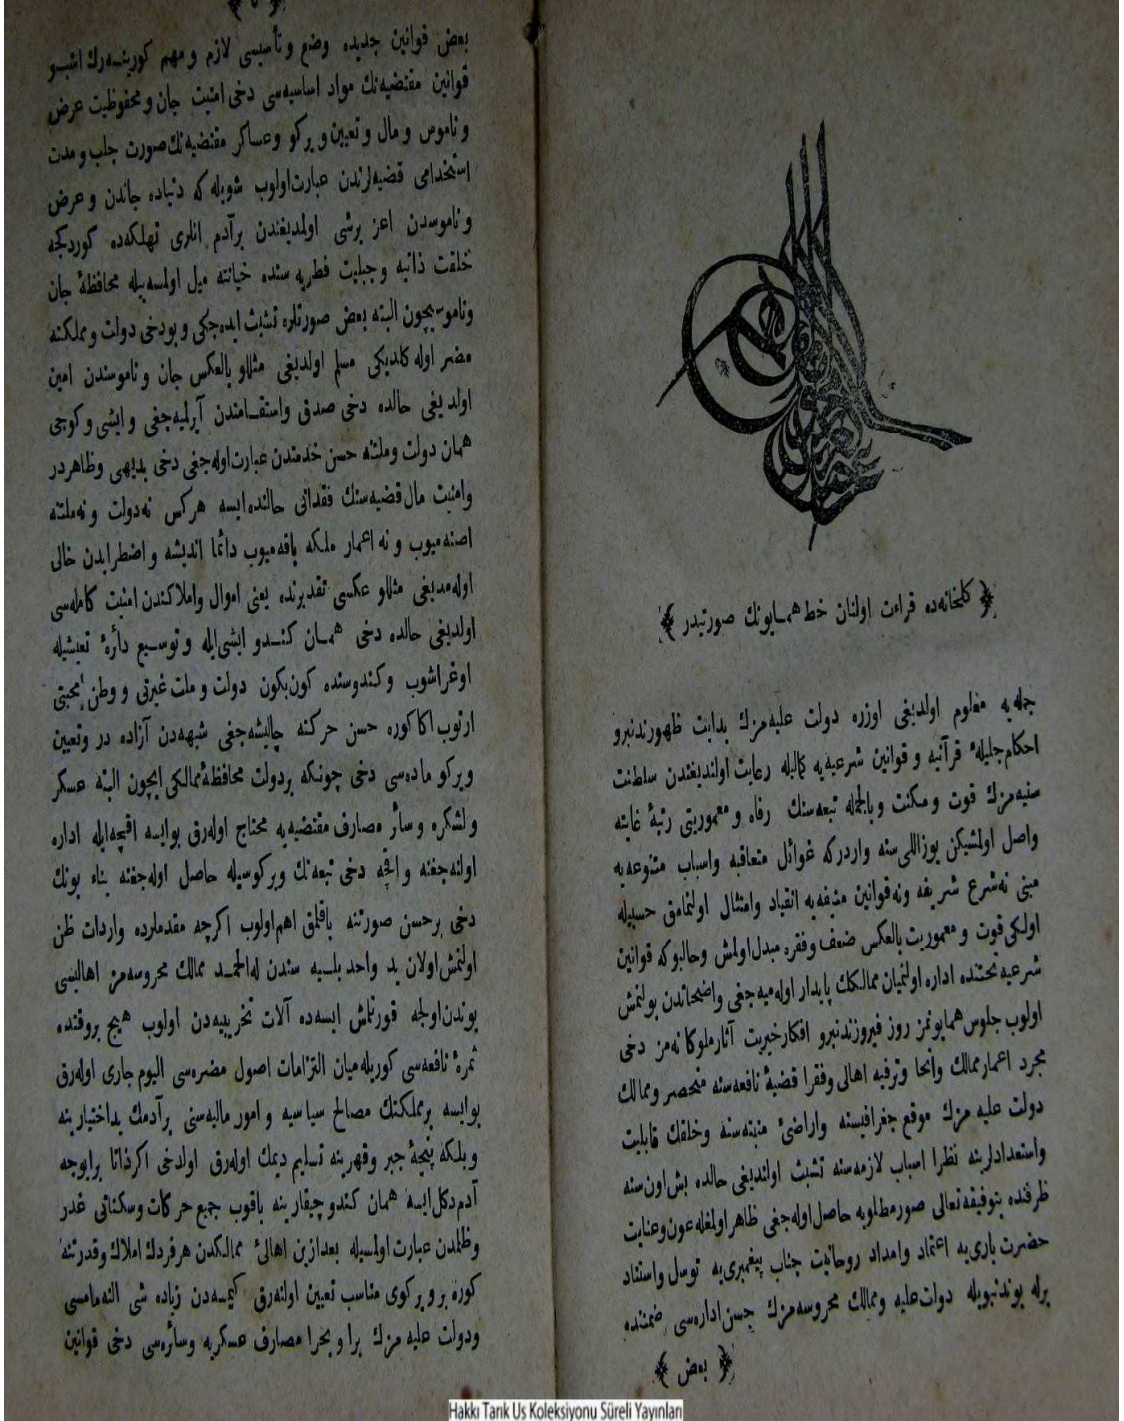 ﴿ كلخانه‌ده قراءت اولنان خط همايونك صورتيدر ﴾
جمله‌يه معلوم اولديغى اوزره دولت عليه‌مزك بدايت ظهورندنبرو
احكام جليلهٔ قرآنيه و قوانين شرعيه‌يه كماليله رعايت اولنديغندن سلطنت
سنيه‌مزك قوت و مكنت و بالجمله تبعه‌سنك رفاه و معموريتى رتبهٔ غايته
واصل اولمشيكن يوزاللى سنه واردركه غوائل متعاقبه واسباب متنوعه‌يه
مبنى نه‌شرع شريفه ونه‌قوانين منيفه‌يه انقياد وامتثال اولنمامق حسبيله
اولكى قوت و معموريت بالعكس ضعف وفقره مبدل‌اولمش وحالبوكه قوانين
شرعيه تحتنده اداره اولنميان ممالكك پايدار اوله‌ميه‌جغى واضحاتدن بولنمش
اولوب جلوس همايونمز روز فيروزندنبرو افكار خيريت آثار ملوكانه‌مز دخى
مجرد اعمار ممالك وانحا وترفيه اهالى وفقرا قضيهٔ نافعه‌سنه منحصر وممالك
دولت عليه مزك موقع جغرافيسنه واراضئ منبته‌سنه وخلقك قابليت
واستعدادلرينه نظرا اسباب لازمه‌سنه تشبث اولنديغى حالده بش‌اون‌سنه
ظرفنده بتوفيقه تعالى صور مطلوبه حاصل‌اوله‌جغى ظاهر اولمغله عون‌وعنايت
حضرت بارى‌يه اعتماد وامداد روحانيت جناب پيغمبرى‌يه توسل واستناد
برله بوندنبويله دولت‌عليه وممالك محروسه‌مزك حسن‌اداره‌سى ضمننده
﴿ بعض ﴾
﴿ ٥ ﴾
بعض قوانين جديده وضع وتأسيسى لازم و مهم كورينه‌رك اشبو
قوانين مقتضيه‌نك مواد اساسيه‌سى دخى امنيت جان و محفوظيت عرض
و ناموس و مال و تعيين ويركو وعساكر مقتضيه‌نك صورت جلب و مدت
استخدامى قضيه‌لرندن عبارت‌اولوب شويله كه دنياده جاندن و عرض
وناموسدن اعز برشى اولمديغندن برآدم انلرى تهلكه‌ده كوردكجه
خلقت ذاتيه وجبليت فطريه سنده خيانته ميل اولمسه‌بيله محافظهٔ جان
وناموسيچون البته بعض صورتلره تشبث ايده‌جكى وبودخى دولت ومملكته
مضر اوله كلديكى مسلم اولديغى مثللو بالعكس جان وناموسندن امين
اولديغى حالده دخى صدق واستقامتدن آيرلميه‌جغى و ايشى وكوجى
همان دولت وملتنه حسن خدمتدن عبارت‌اوله‌جغى دخى بديهى وظاهردر
وامنيت مال قضيه‌سنك فقدانى حالنده‌ايسه هركس نه‌دولت و نه‌ملتنه
اصنه‌ميوب و نه اعمار ملكه باقه‌ميوب دائما انديشه واضطرابدن خالى
اوله‌مديغى مثللو عكسى تقديرنده يعنى اموال واملاكندن امنيت كامله‌سى
اولديغى حالده دخى همان كندو ايشى‌ايله وتوسيع دائرهٔ تعيشيله
اوغراشوب وكندوسنده كون‌بكون دولت وملت غيرتى و وطن محبتى
ارتوب اكا كوره حسن حركته چاليشه‌جغى شبهه‌دن آزاده در وتعيين
ويركو ماده‌سى دخى چونكه بردولت محافظهٔ ممالكى ايچون البته عسكر
ولشكره وسائر مصارف مقتضيه‌يه محتاج اوله‌رق بوايسه اقچه‌ايله اداره
اولنه‌جغنه و اقچه دخى تبعه‌نك ويركوسيله حاصل اوله‌جغنه بناء بونك
دخى برحسن صورتنه باقلمق اهم‌اولوب اكرچه مقدملرده واردات ظن
اولنمش اولان يد واحد بليه سندن له‌الحمد ممالك محروسه‌مز اهاليسى
بوندن اولجه قورتلمش ايسه‌ده آلات تخريبيه‌دن اولوب هيچ بروقتده
ثمرهٔ نافعه‌سى كوريله‌ميان التزامات اصول مضره‌سى اليوم جارى اوله‌رق
بوايسه برمملكتك مصالح سياسيه و امور ماليه‌سنى برآدمك يداختيارينه
وبلكه پنجهٔ جبر وقهرينه تسليم ديمك اوله‌رق اولدخى اكرذاتا برايوجه
آدم دكل‌ايسه همان كندو چيقارينه باقوب جميع حركات وسكناتى غدر
وظلمدن عبارت اولمسيله بعدازين اهالئ ممالكدن هرفردك املاك وقدرتنه
كوره برويركوى مناسب تعيين اولنه‌رق كيمسه‌دن زياده شى النه‌مامسى
ودولت عليه مزك برا وبحرا مصارف عسكريه وسائره‌سى دخى قوانين
Hakkı Tarık Us Koleksiyonu Süreli Yayınları